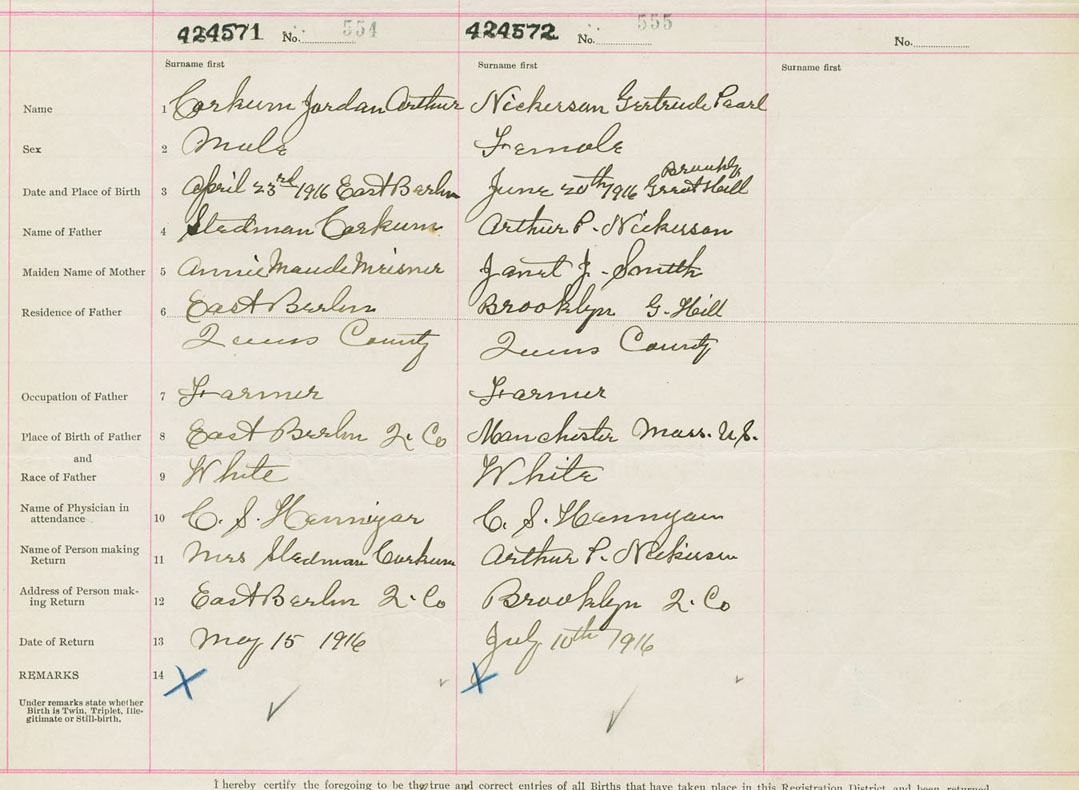 424571 No. 554 424572 No. 555 No.
Surname first Surname first Surname first
Name 1 Corkum Jordan Arthur Nickerson Gertrude Pearl
Sex 2 Male Female
Brooklyn
Date and Place of Birth 3 April 23rd 1916 East Berlin June 20th 1916 Great Hill
Name of Father 4 Stedman Corkum Arthur P. Nickerson
Maiden Name of Mother 5 Annie Maude Meisner Janet J. Smith
Residence of Father 6 East Berlin Brooklyn G. Hill
Queens County Queens County
Occupation of Father 7 Farmer Farmer
Place of Birth of Father 8 East Berlin Q. Co Manchester Mass. U.S.
and
Race of Father 9 White White
Name of Physician in
attendance 10 C. S. Hennigar C. S. Hennigar
Name of Person making
Return 11 Mrs Stedman Corkum Arthur P. Nickerson
Address of Person mak-
ing Return 12 East Berlin Q. Co Brooklyn Q. Co
Date of Return 13 May 15 1916 July 10th 1916
REMARKS 14
Under remarks state whether
Birth is Twin, Triplet, Ille-
gitimate or Still-birth.
I hereby certify the foregoing to be the true and correct entries of all Births that have taken place in this Registration District and been returned